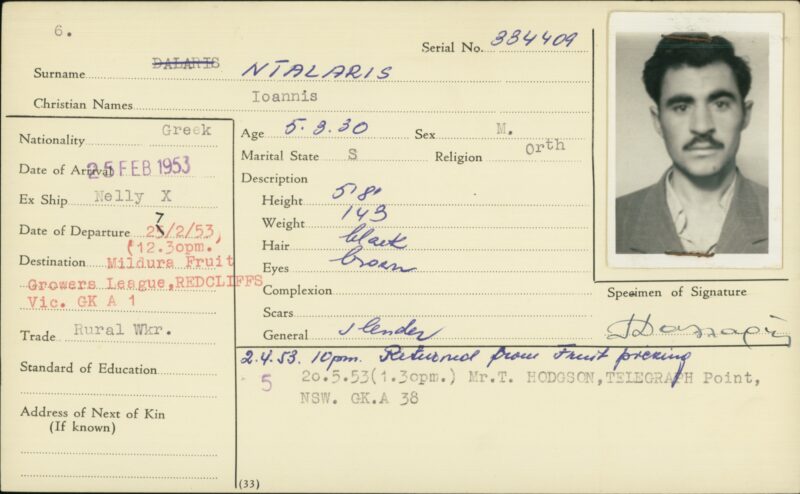 6.
Serial No. 334409
DALARIS
Surname NTALARIS
Christian Names Ioannis
Nationality Greek
Date of Arrival 25 FEB 1953
Ex Ship Nelly X
Date of Departure 27/2/53
(12.30pm.
Destination Mildura Fruit
Growers League,REDCLIFFS
Vic. GK A 1
Trade Rural Wkr.
Standard of Education
Address of Next of Kin
(If known)
Age 5.3.30 Sex M.
Marital State S Religion Orth
Description
Height 5'8"
Weight 143
Hair black
Eyes brown
Complexion
Scars
General slender
Specimen of Signature
2.4.53. 10pm. Returned from Fruit picking
5 20.5.53(1.30pm.) Mr.T. HODGSON,TELEGRAPH Point,
NSW. GK.A 38
(33)